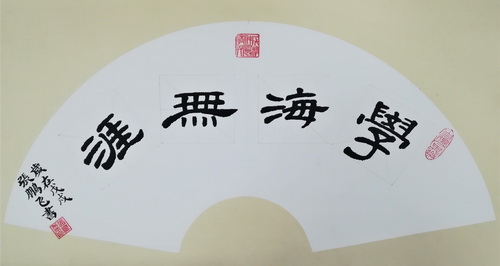 學海無涯
歲在戊戌
張鵬飞書